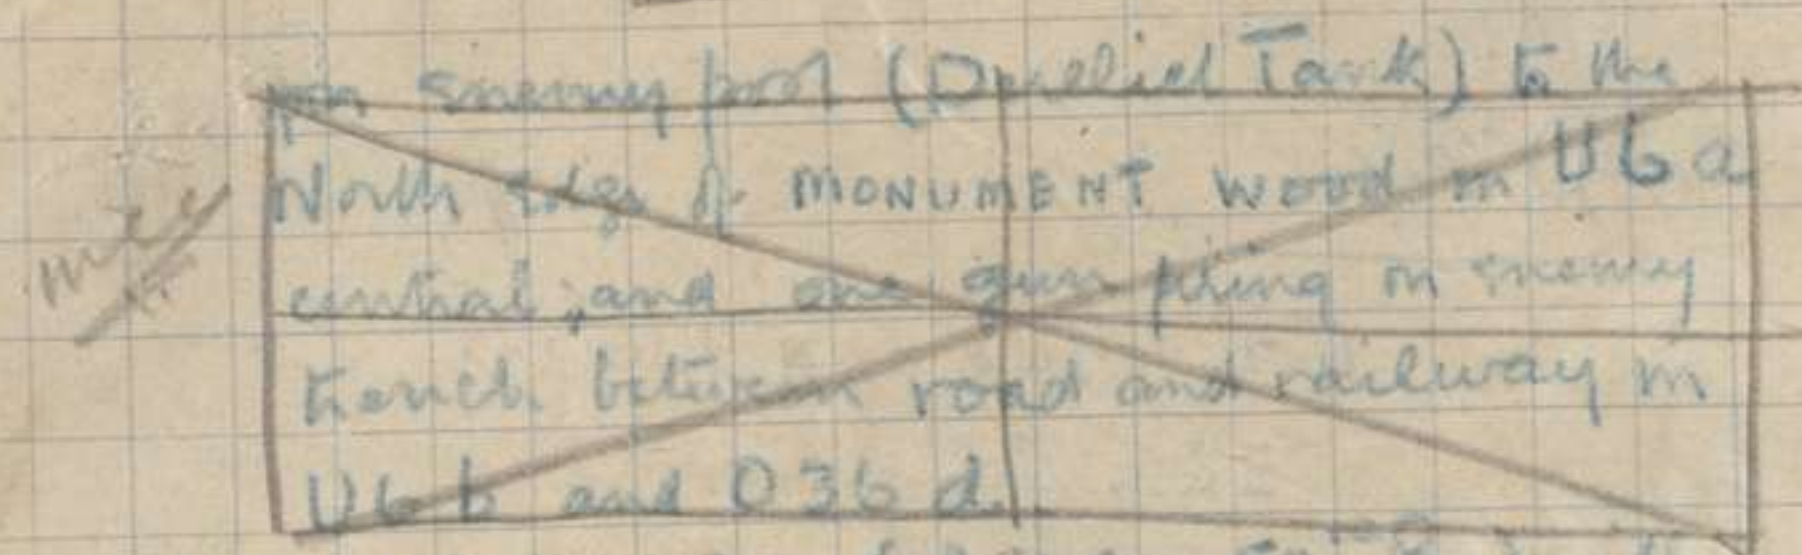 on enemy post (Derelict Tank) to the
North Edge of MONUMENT WOOD in U6a
central, and one gun firing on enemy
trench between road and railway in
U6b and O36d.